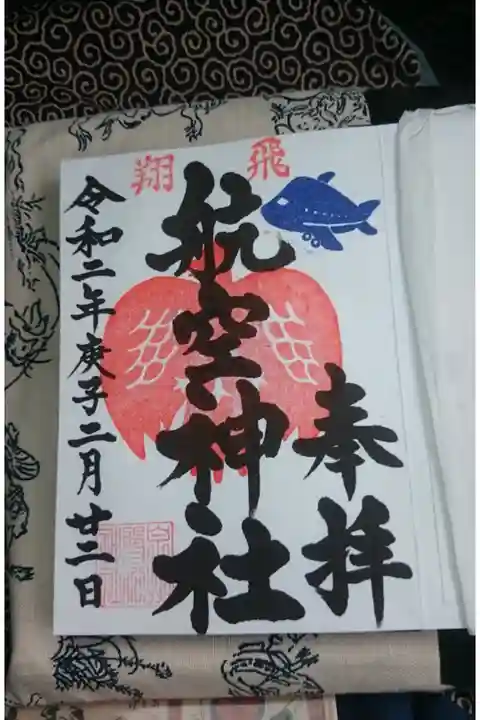 飛翔
奉拝
航空神社
令和二年庚子二月廿二日